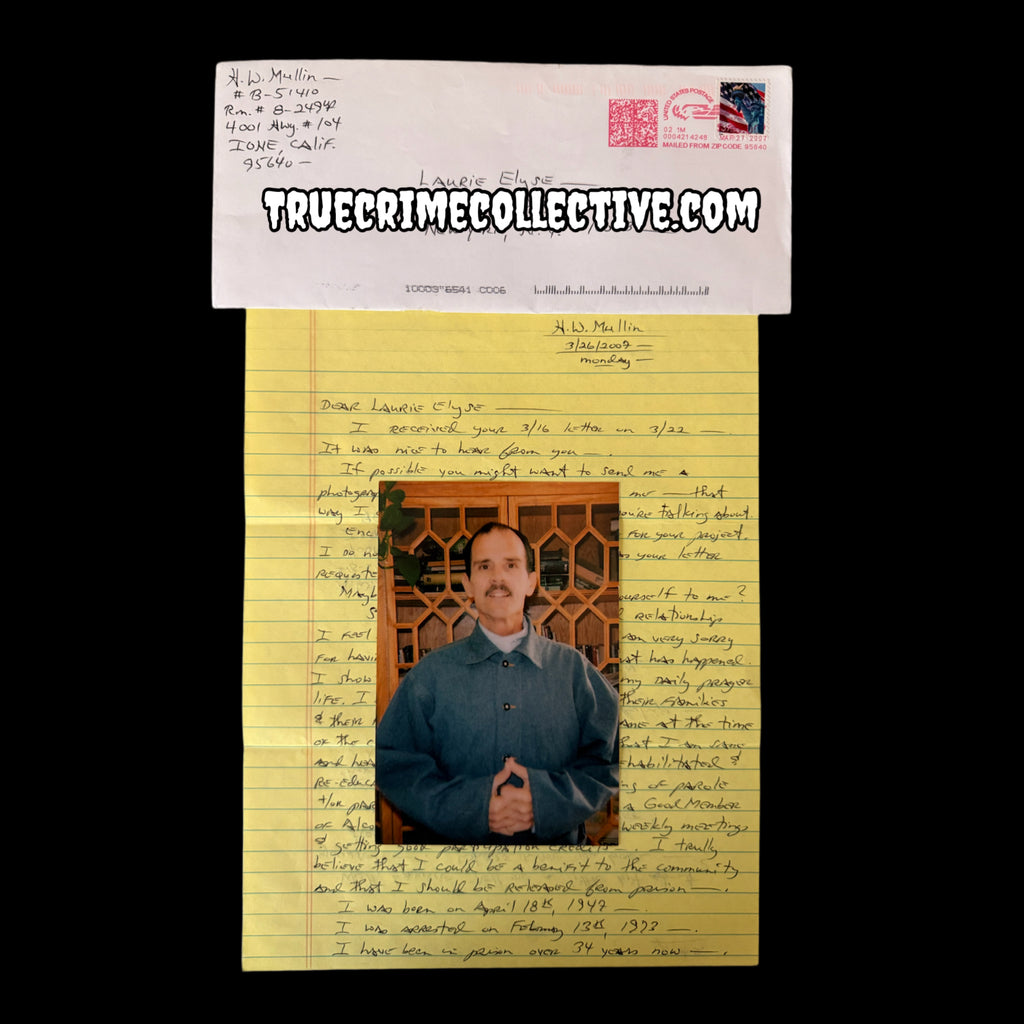 H.W. Mullin —
# B-51410
Rm. # 8-249
4001 Hwy. # 104
IONE, CALIF.
95640 —
UNITED STATES POSTAGE
02 1M
0004214248 MAR 27 2007
MAILED FROM ZIP CODE 95640
LAURIE Elyse —
TRUECRIMECOLLECTIVE.COM
H.W. Mullin
3/26/2007 —
monday —
DEAR LAURIE Elyse —
I RECEIVED your 3/16 letter on 3/22 —.
It was nice to hear from you —.
If possible you might want to send me a
me — that
way I you're talking about.
FOR your project.
I do your letter
yourself to me?
RELATIONSHIP
I FEEL am very sorry
FOR what has happened.
I my DAILY prayer
LIFE. I their FAMILIES
& their at the time
OF the that I am SANE
and REhabilitated &
of PAROLE
+/OR a Good Member
OF weekly meetings
& getting good participation credits —. I trully
believe that I could be a benifit to the community
and that I should be RELEASED from prison —.
I was born on April 18th, 1947 —.
I was arrested on February 13th, 1973 —.
I have been in prison over 34 years now —.